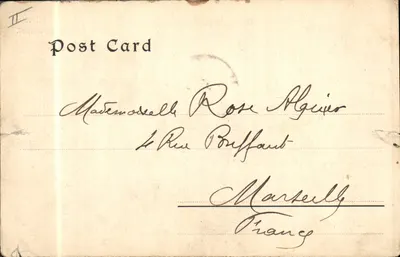 II
Post Card
Mademoiselle Rose Algier
4 Rue Bouffaut
Marseille
France